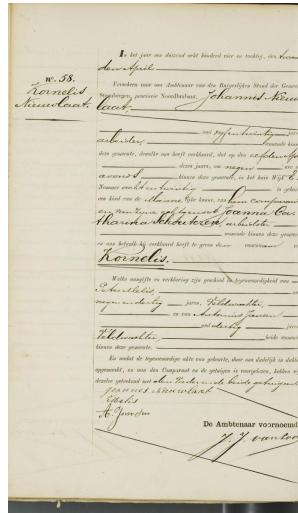 No. 58.
Kornelis
Nieuwlaat.
In het jaar een duizend acht honderd vier en tachtig, den
den April
Verscheen voor ons Ambtenaar van den Burgerlijken Stand der Gemeen
Steenbergen, provincie Noordbrabant, Johannis Nieuw
laat.
oud negentwintig jaren
arbeider, wonende binnen
deze gemeente, dewelke ons heeft verklaard, dat op den elfden Apr
dezes jaars, om negen ure
avonds binnen deze gemeente, in het huis Wijk E.
Nummer acht en twintig is gebo
een kind van de Mannelijke kunne, van hem comparant
en van zijne echtgenoot Joanna Cat
tharina Schouteren, arbeidster
wonende binnen deze gemeen
en aan hetzelk hij verklaard heeft te geven den voornaam
Kornelis.
Welke aangifte en verklaring zijn geschied in tegenwoordigheid van
Peter Lelis,
negenendertig jaren, Veldwachter,
en van Antonius
oud dertig jaren
Veldwachter, beide wonende
binnen deze gemeente.
En nadat de tegenwoordige akte van geboorte, daar van dadelijk in dubbel
opgemaakt, en aan den Comparant en de getuigen is voorgelezen, hebben wij
dezelve geteekend met den Vader en de beide getuigen
Joannes Nieuwlaat
PLelis
De Ambtenaar voornoemd
J. J. van Loo